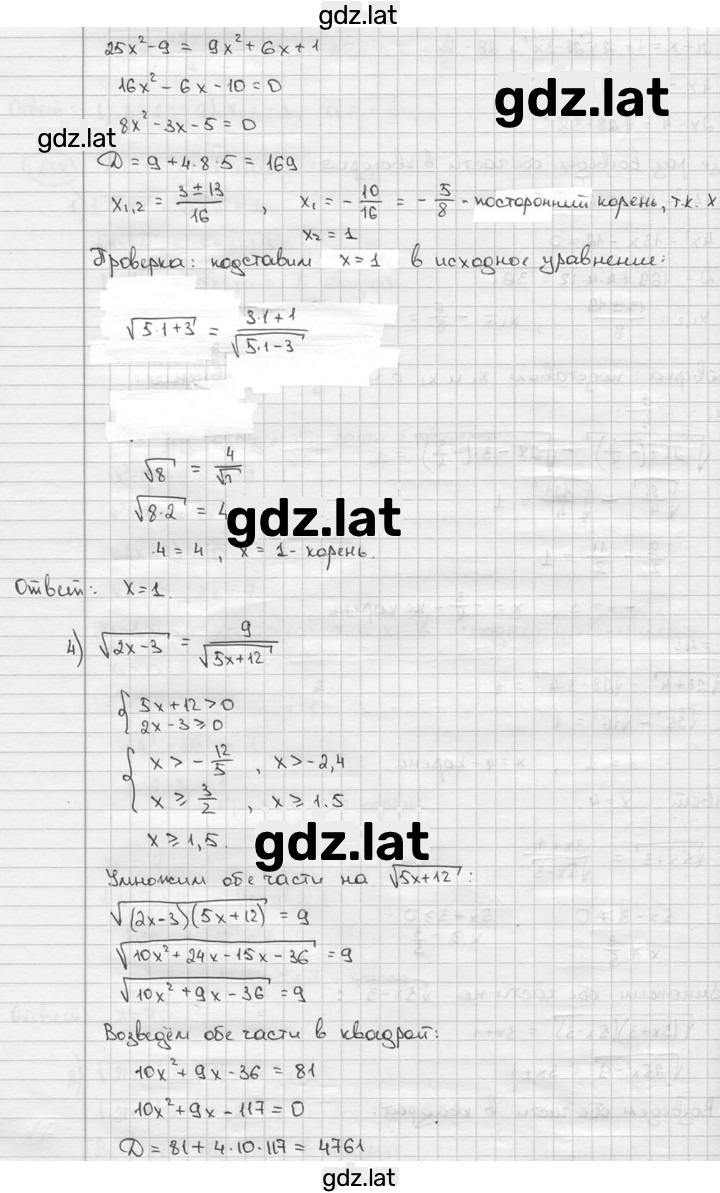 gdz.lat
25x² - 9 = 9x² + 6x + 1
16x² - 6x - 10 = 0
gdz.lat
gdz.lat
8x² - 3x - 5 = 0
D = 9 + 4·8·5 = 169
x₁,₂ = (3 ± 13)/16 , x₁ = -10/16 = -5/8 - посторонний корень, т.к. x
x₂ = 1
Проверка: подставим x = 1 в исходное уравнение:
√(5·1+3) = (3·1+1)/√(5·1-3)
√8 = 4/√2
√(8·2) = 4
gdz.lat
4 = 4 , x = 1 - корень.
Ответ: x = 1.
4) √(2x-3) = 9/√(5x+12)
{ 5x + 12 > 0
2x - 3 ≥ 0
{ x > -12/5 , x > -2,4
x ≥ 3/2 , x ≥ 1.5
x ≥ 1,5.
gdz.lat
Умножим обе части на √(5x+12) :
√((2x-3)(5x+12)) = 9
√(10x² + 24x - 15x - 36) = 9
√(10x² + 9x - 36) = 9
Возведём обе части в квадрат:
10x² + 9x - 36 = 81
10x² + 9x - 117 = 0
D = 81 + 4·10·117 = 4761
gdz.lat